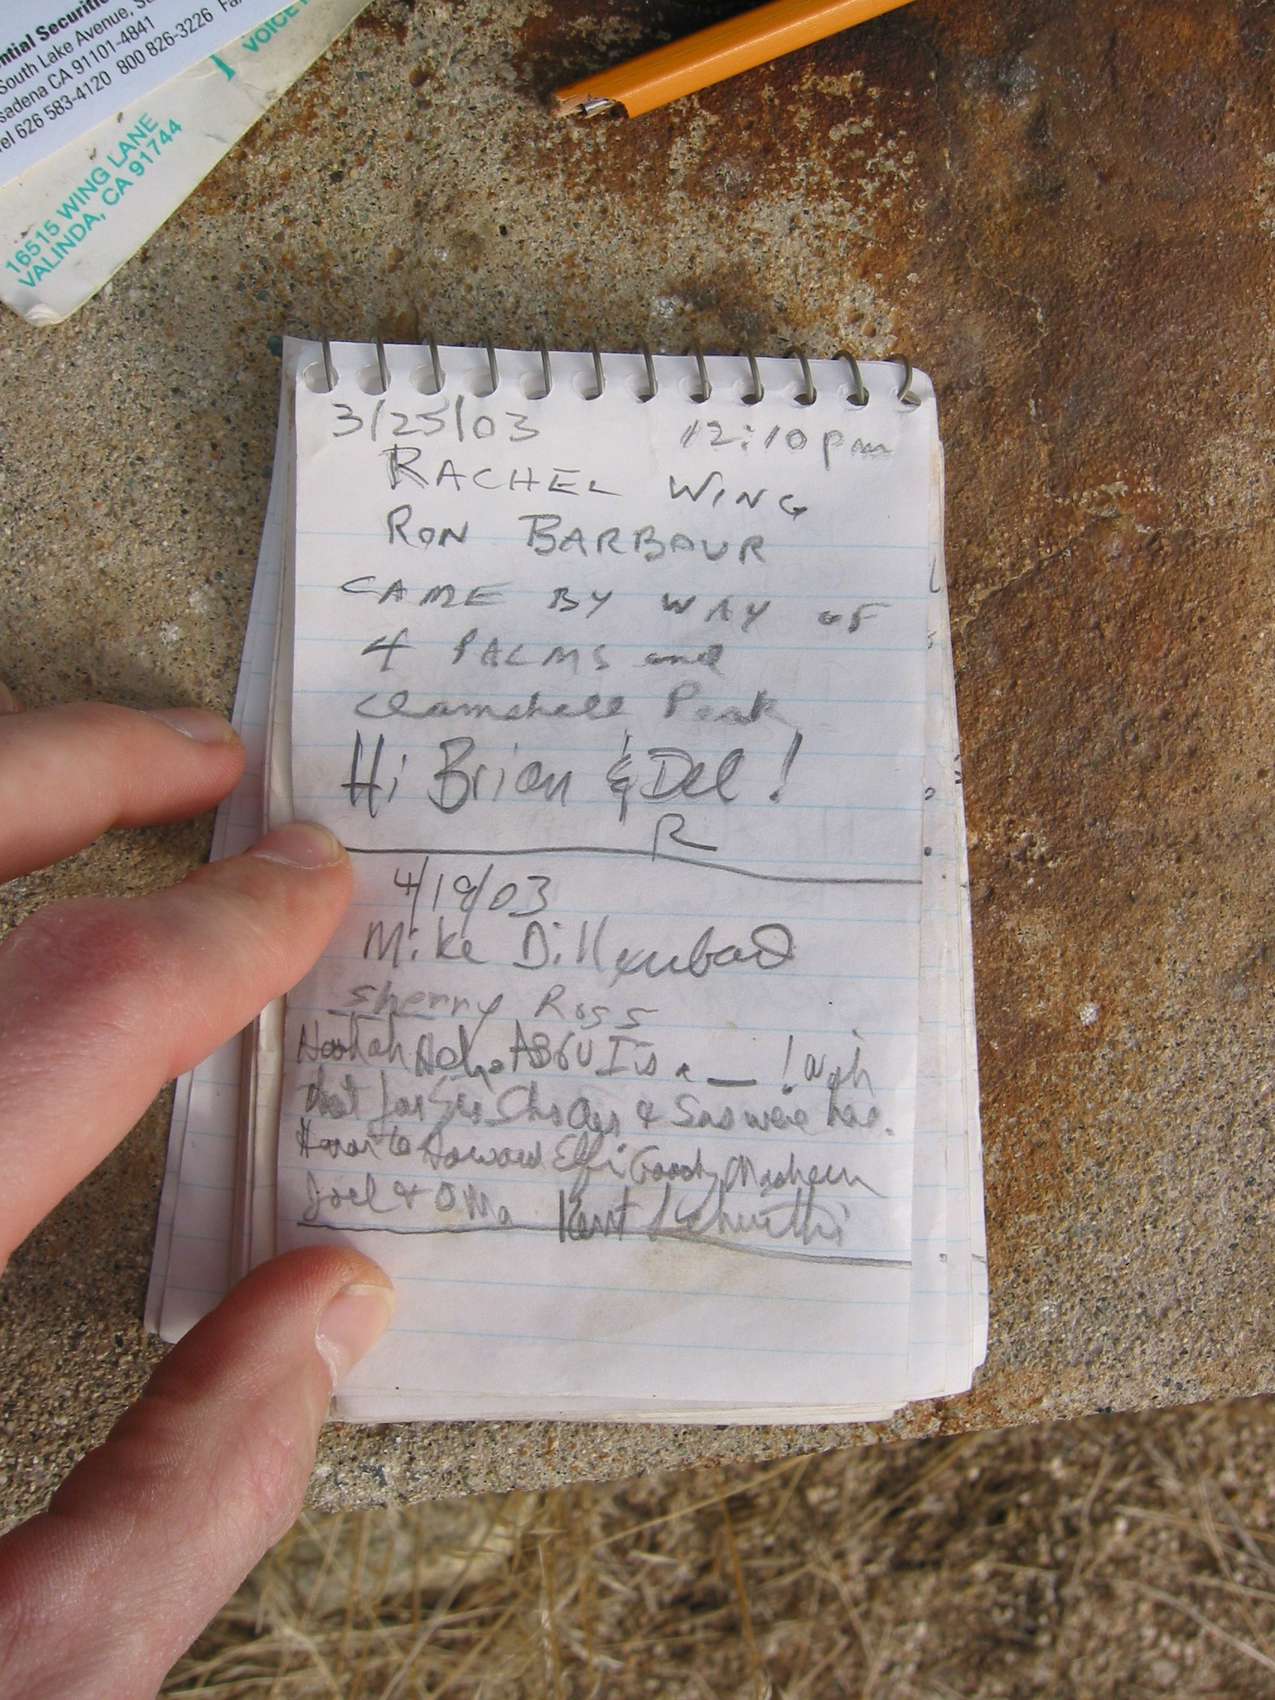 ntial Securities
South Lake Avenue,
sadena CA 91101-4841
el 626 583-4120 800 826-3226
VOICE
16515 WING LANE
VALINDA, CA 91744
3/25/03 12:10pm
RACHEL WING
RON BARBOUR
CAME BY WAY OF
4 PALMS and
Clamshell Peak
Hi Brian & Del!
R
4/19/03
Mike
Sherry Ross
Is a __! Wish
that & Sns were here.
Howard Effi
Joel & OMa Kent